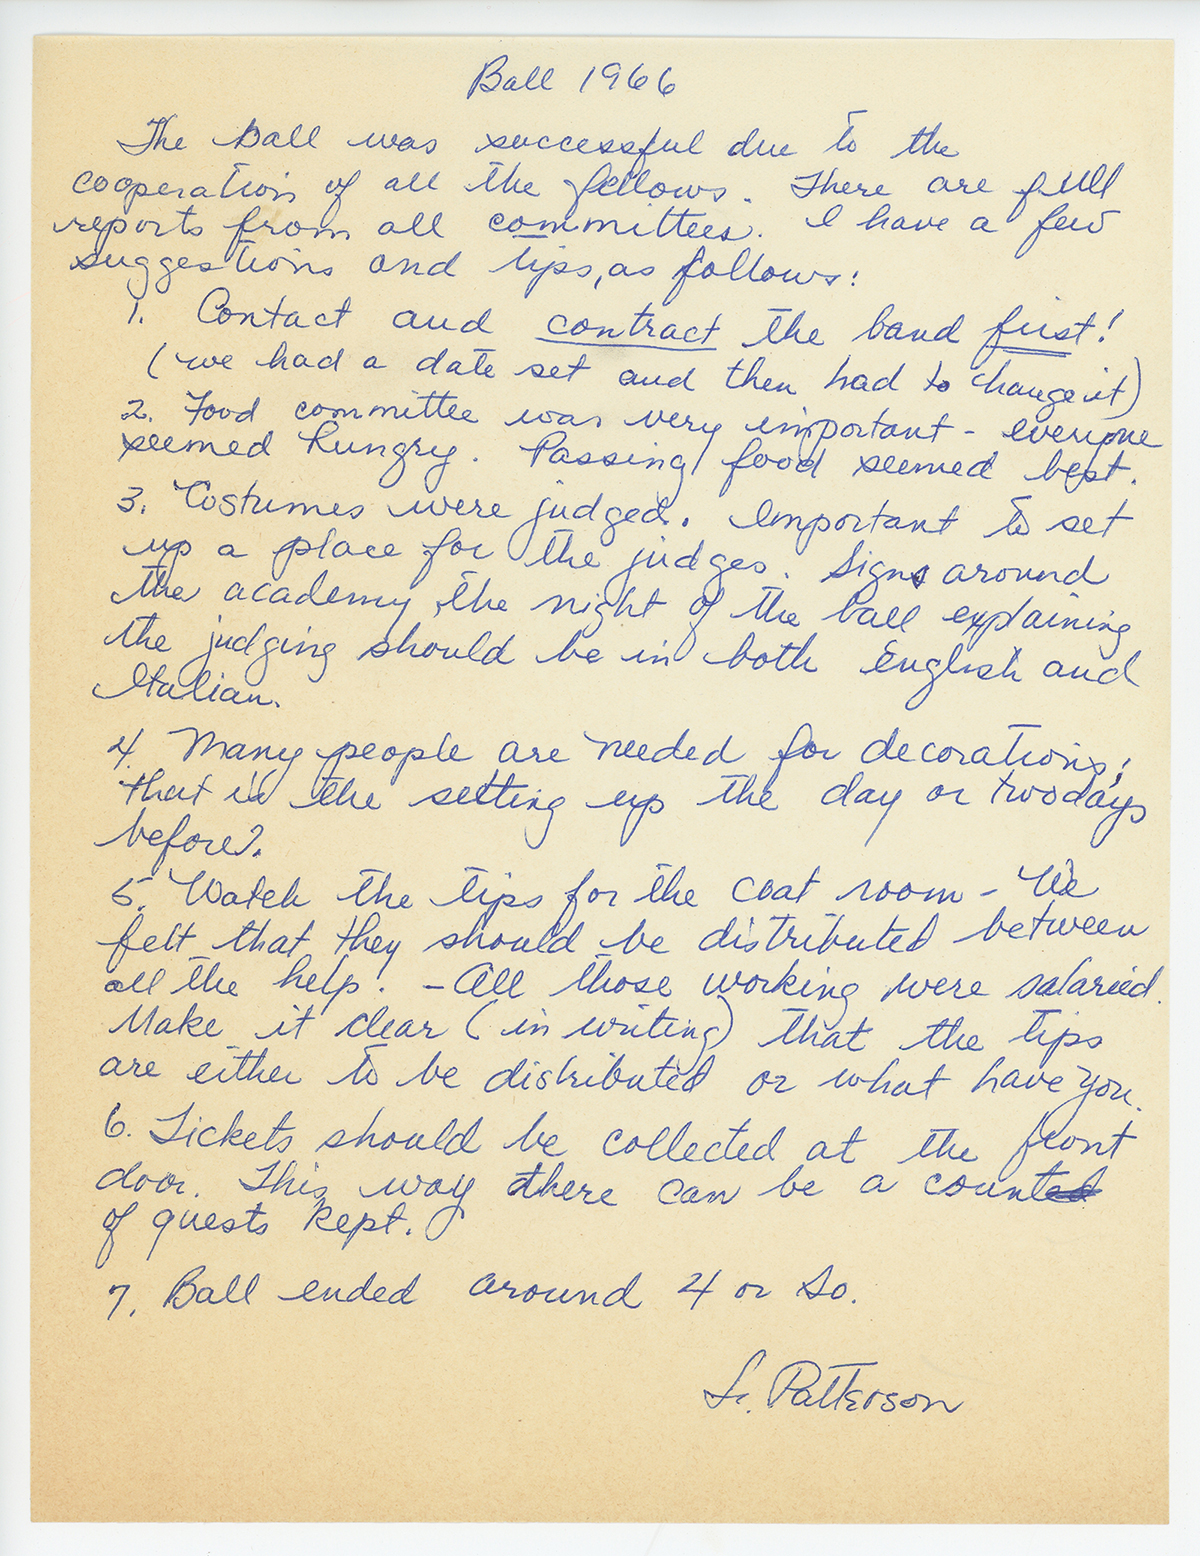 Ball 1966
The Ball was successful due to the
cooperation of all the fellows. There are full
reports from all committees. I have a few
suggestions and tips, as follows:
1. Contact and contract the band first!
(we had a date set and then had to change it)
2. Food committee was very important - everyone
seemed hungry. Passing food seemed best.
3. Costumes were judged. Important to set
up a place for the judges. Signs around
the academy, the night of the ball explaining
the judging should be in both English and
Italian.
4. Many people are needed for decorations;
that is the setting up the day or two days
before.
5. Watch the tips for the coat room - We
felt that they should be distributed between
all the help. - All those working were salaried.
Make it clear (in writing) that the tips
are either to be distributed or what have you.
6. Tickets should be collected at the front
door. This way there can be a count
of guests kept.
7. Ball ended around 4 or so.
Patterson